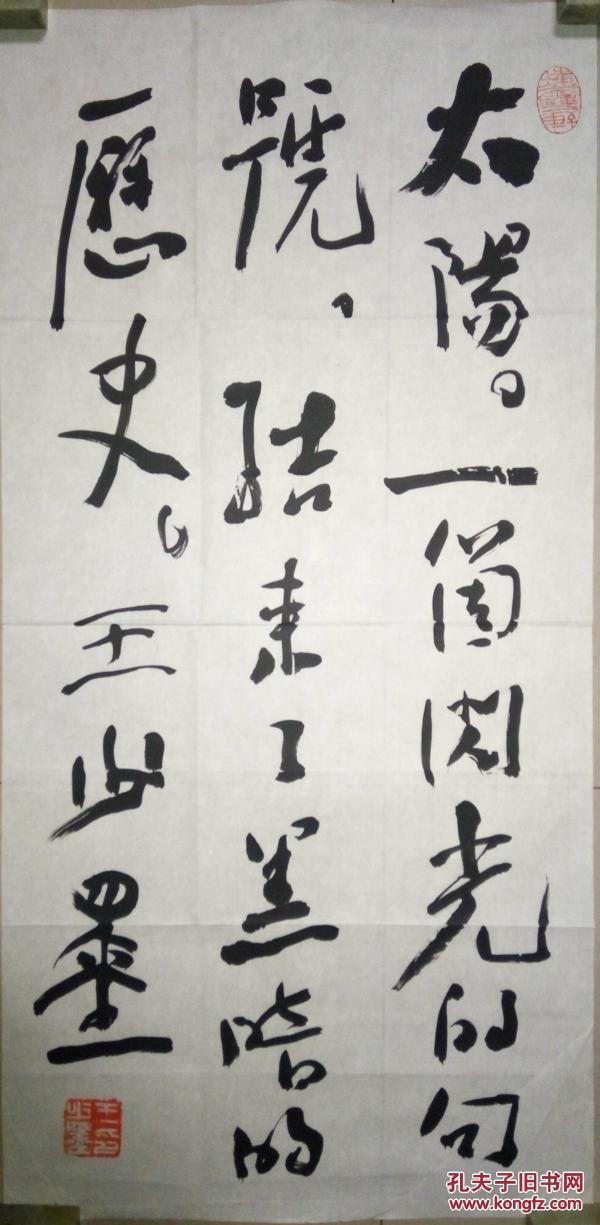 太陽。一個閃光的句
號、結束了黑暗的
歷史。王少墨
孔夫子旧书网
www.kongfz.com